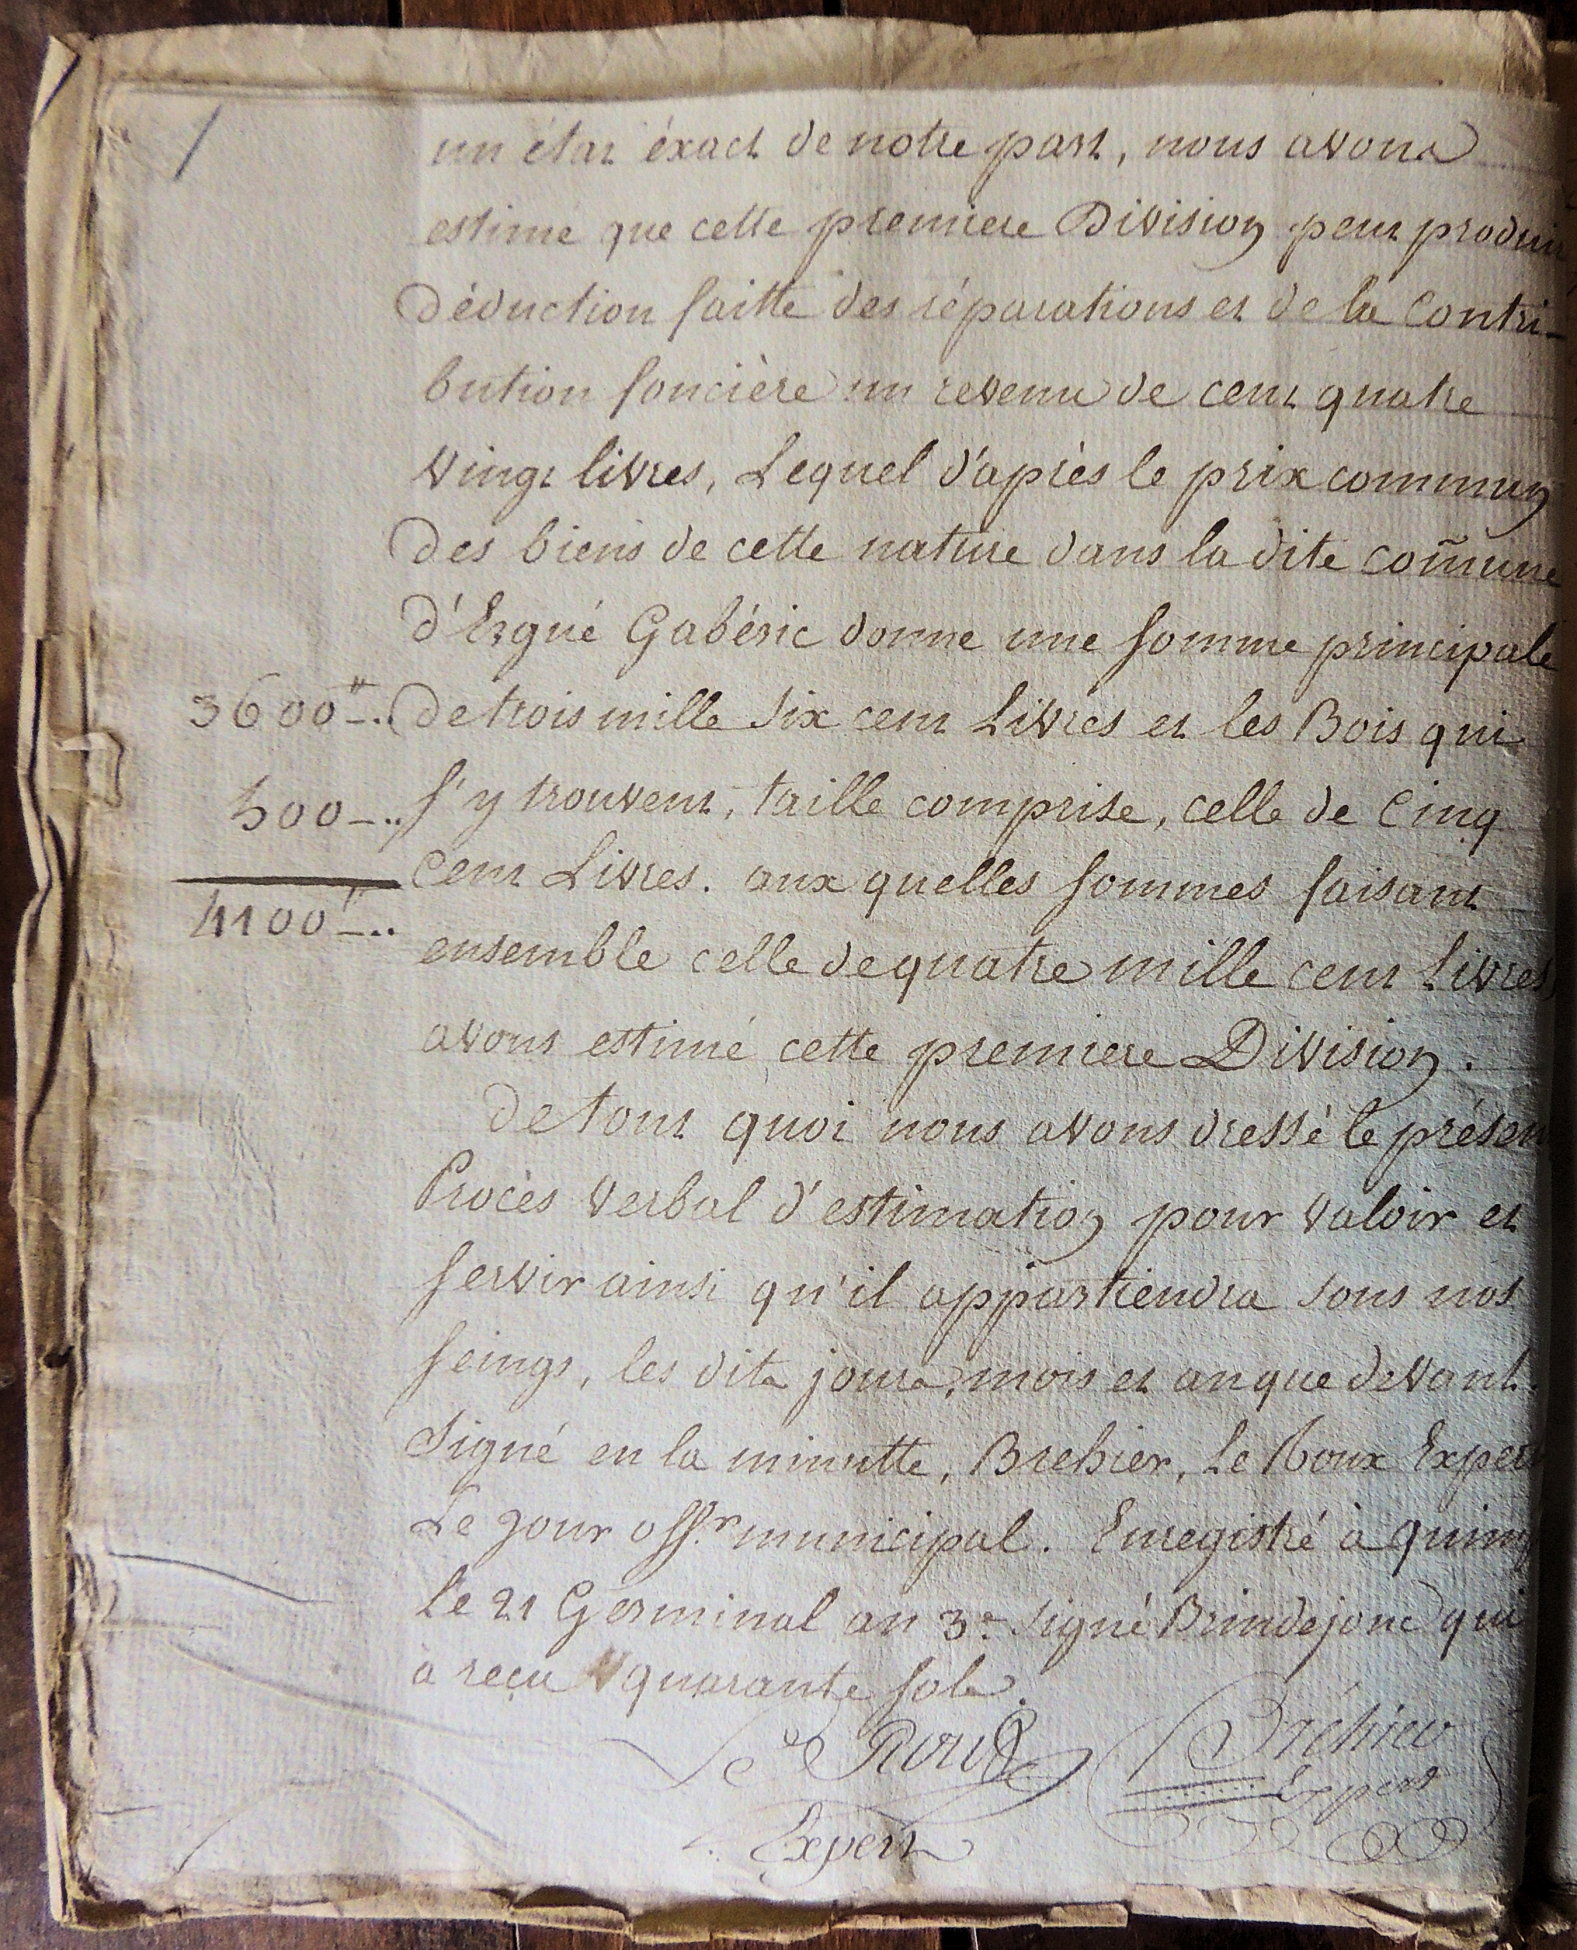 un état éxact de notre part, nous avons
estimé que cette premiere Division peut produir
déduction faitte des réparations et de la Contri-
bution foncière un revenu de cent quatre
vingt livres, Lequel d'après le prix commun
des biens de cette nature dans la dite com̃une
d'Ergué Gabéric donne une somme principale
3600# -.. de trois mille six cent Livres et les Bois qui
500 -.. s'y trouvent, taille comprise, celle de Cinq
cent Livres. aux quelles sommes faisant
4100# -..
ensemble celle de quatre mille cent Livres,
avons estimé cette premiere Division.
de tout quoi nous avons dressé le présen
Procès verbal d'estimation pour valoir et
servir ainsi qu'il appartiendra sous nos
seings, les dits jours, mois et an que devant.
Signé en la minutte, Brehier, Le Roux Expert
Le Jour off.r municipal. Enregistré à quim
le 21 Germinal an 3e signé Brindejonc qui
à reçu quarante sols.
Le Roux Bréhier
Expert
Expert